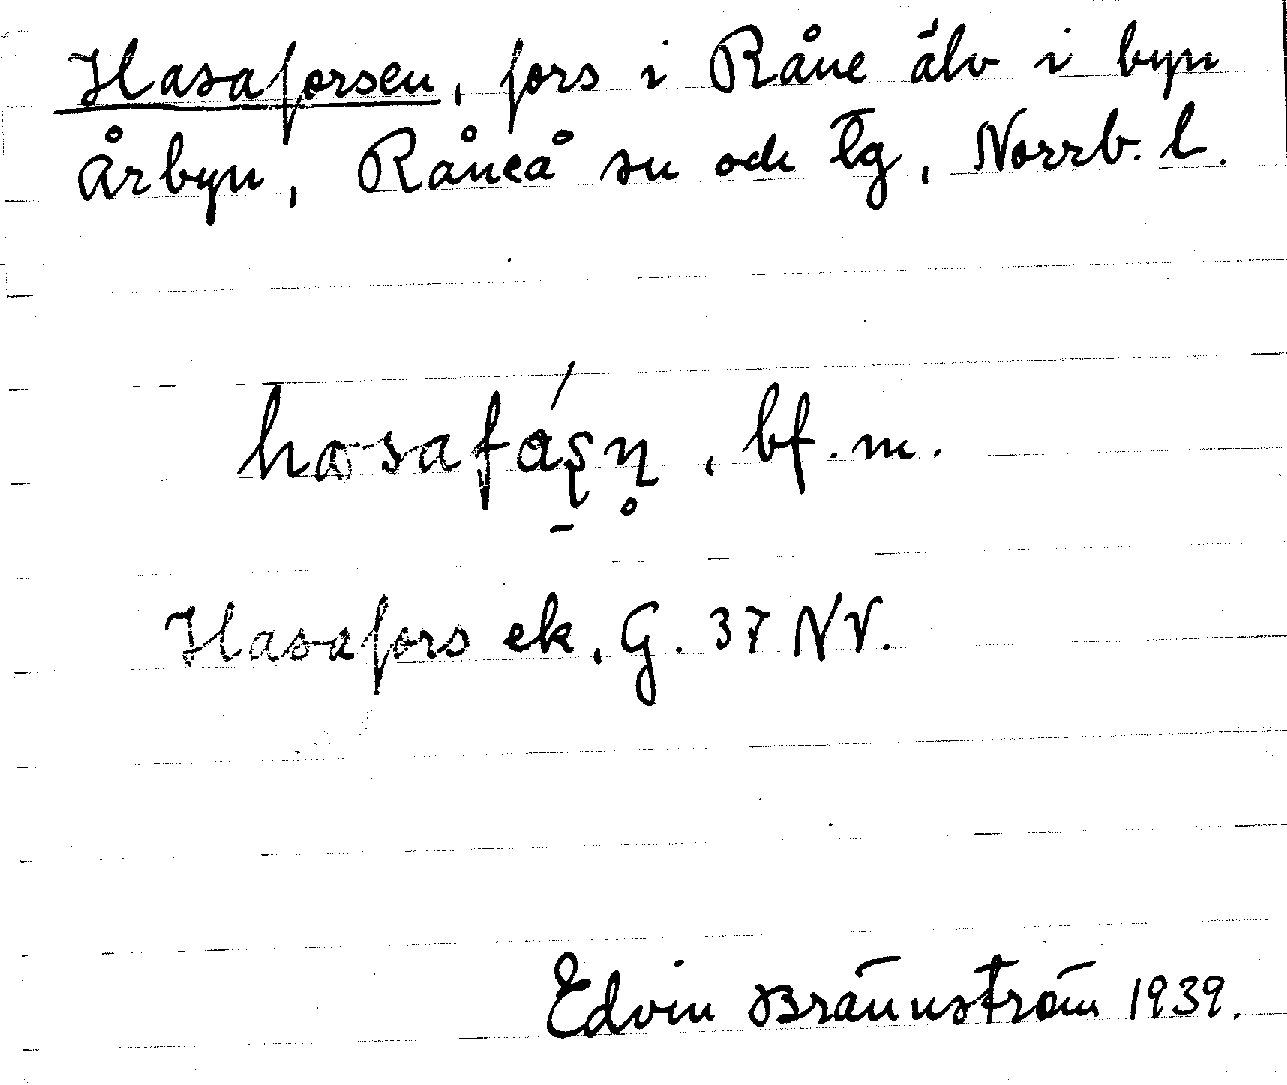 Hasaforsen, fors i Råne älv i byn
Årbyn, Råneå sn och tg, Norrb. l.
hasafás̨n̥, bf. m.
Hasafors ek. G. 37 NV.
Edvin Brännström 1939.